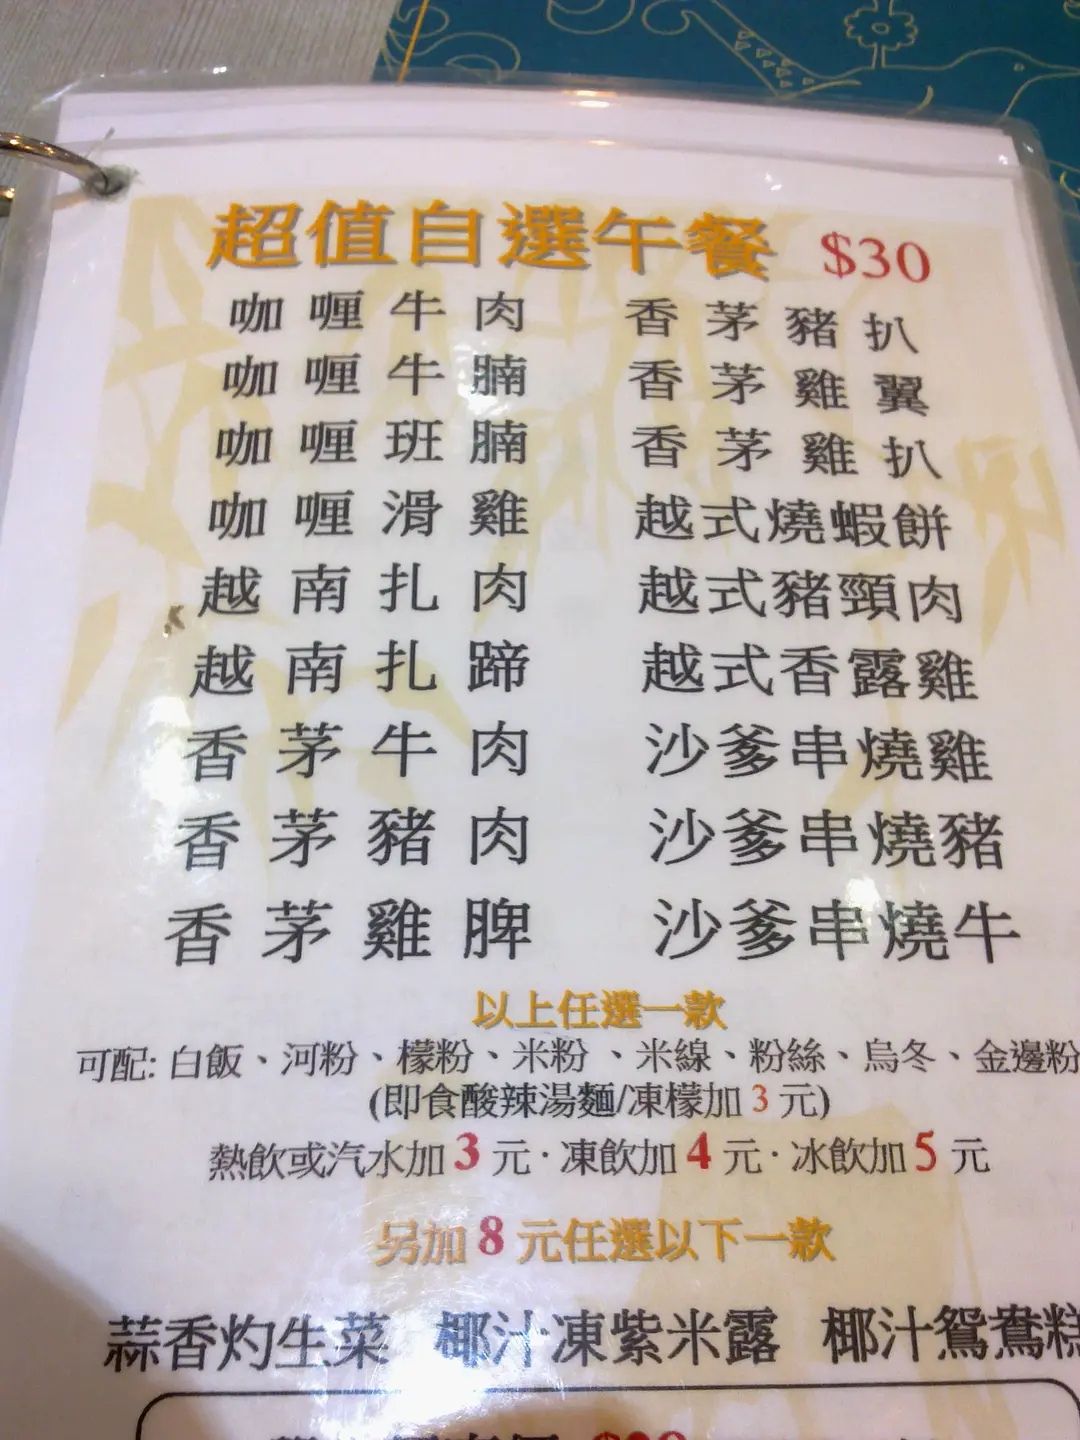 超值自選午餐 $30
咖喱牛肉 香茅豬扒
咖喱牛腩 香茅雞翼
咖喱班腩 香茅雞扒
咖喱滑雞 越式燒蝦餅
越南扎肉 越式豬頸肉
越南扎蹄 越式香露雞
香茅牛肉 沙爹串燒雞
香茅豬肉 沙爹串燒豬
香茅雞脾 沙爹串燒牛
以上任選一款
可配: 白飯、河粉、檬粉、米粉、米線、粉絲、烏冬、金邊粉
(即食酸辣湯麵/凍檬加 3 元)
熱飲或汽水加 3 元·凍飲加 4 元·冰飲加 5 元
另加 8 元任選以下一款
蒜香灼生菜 椰汁凍紫米露 椰汁鴛鴦糕